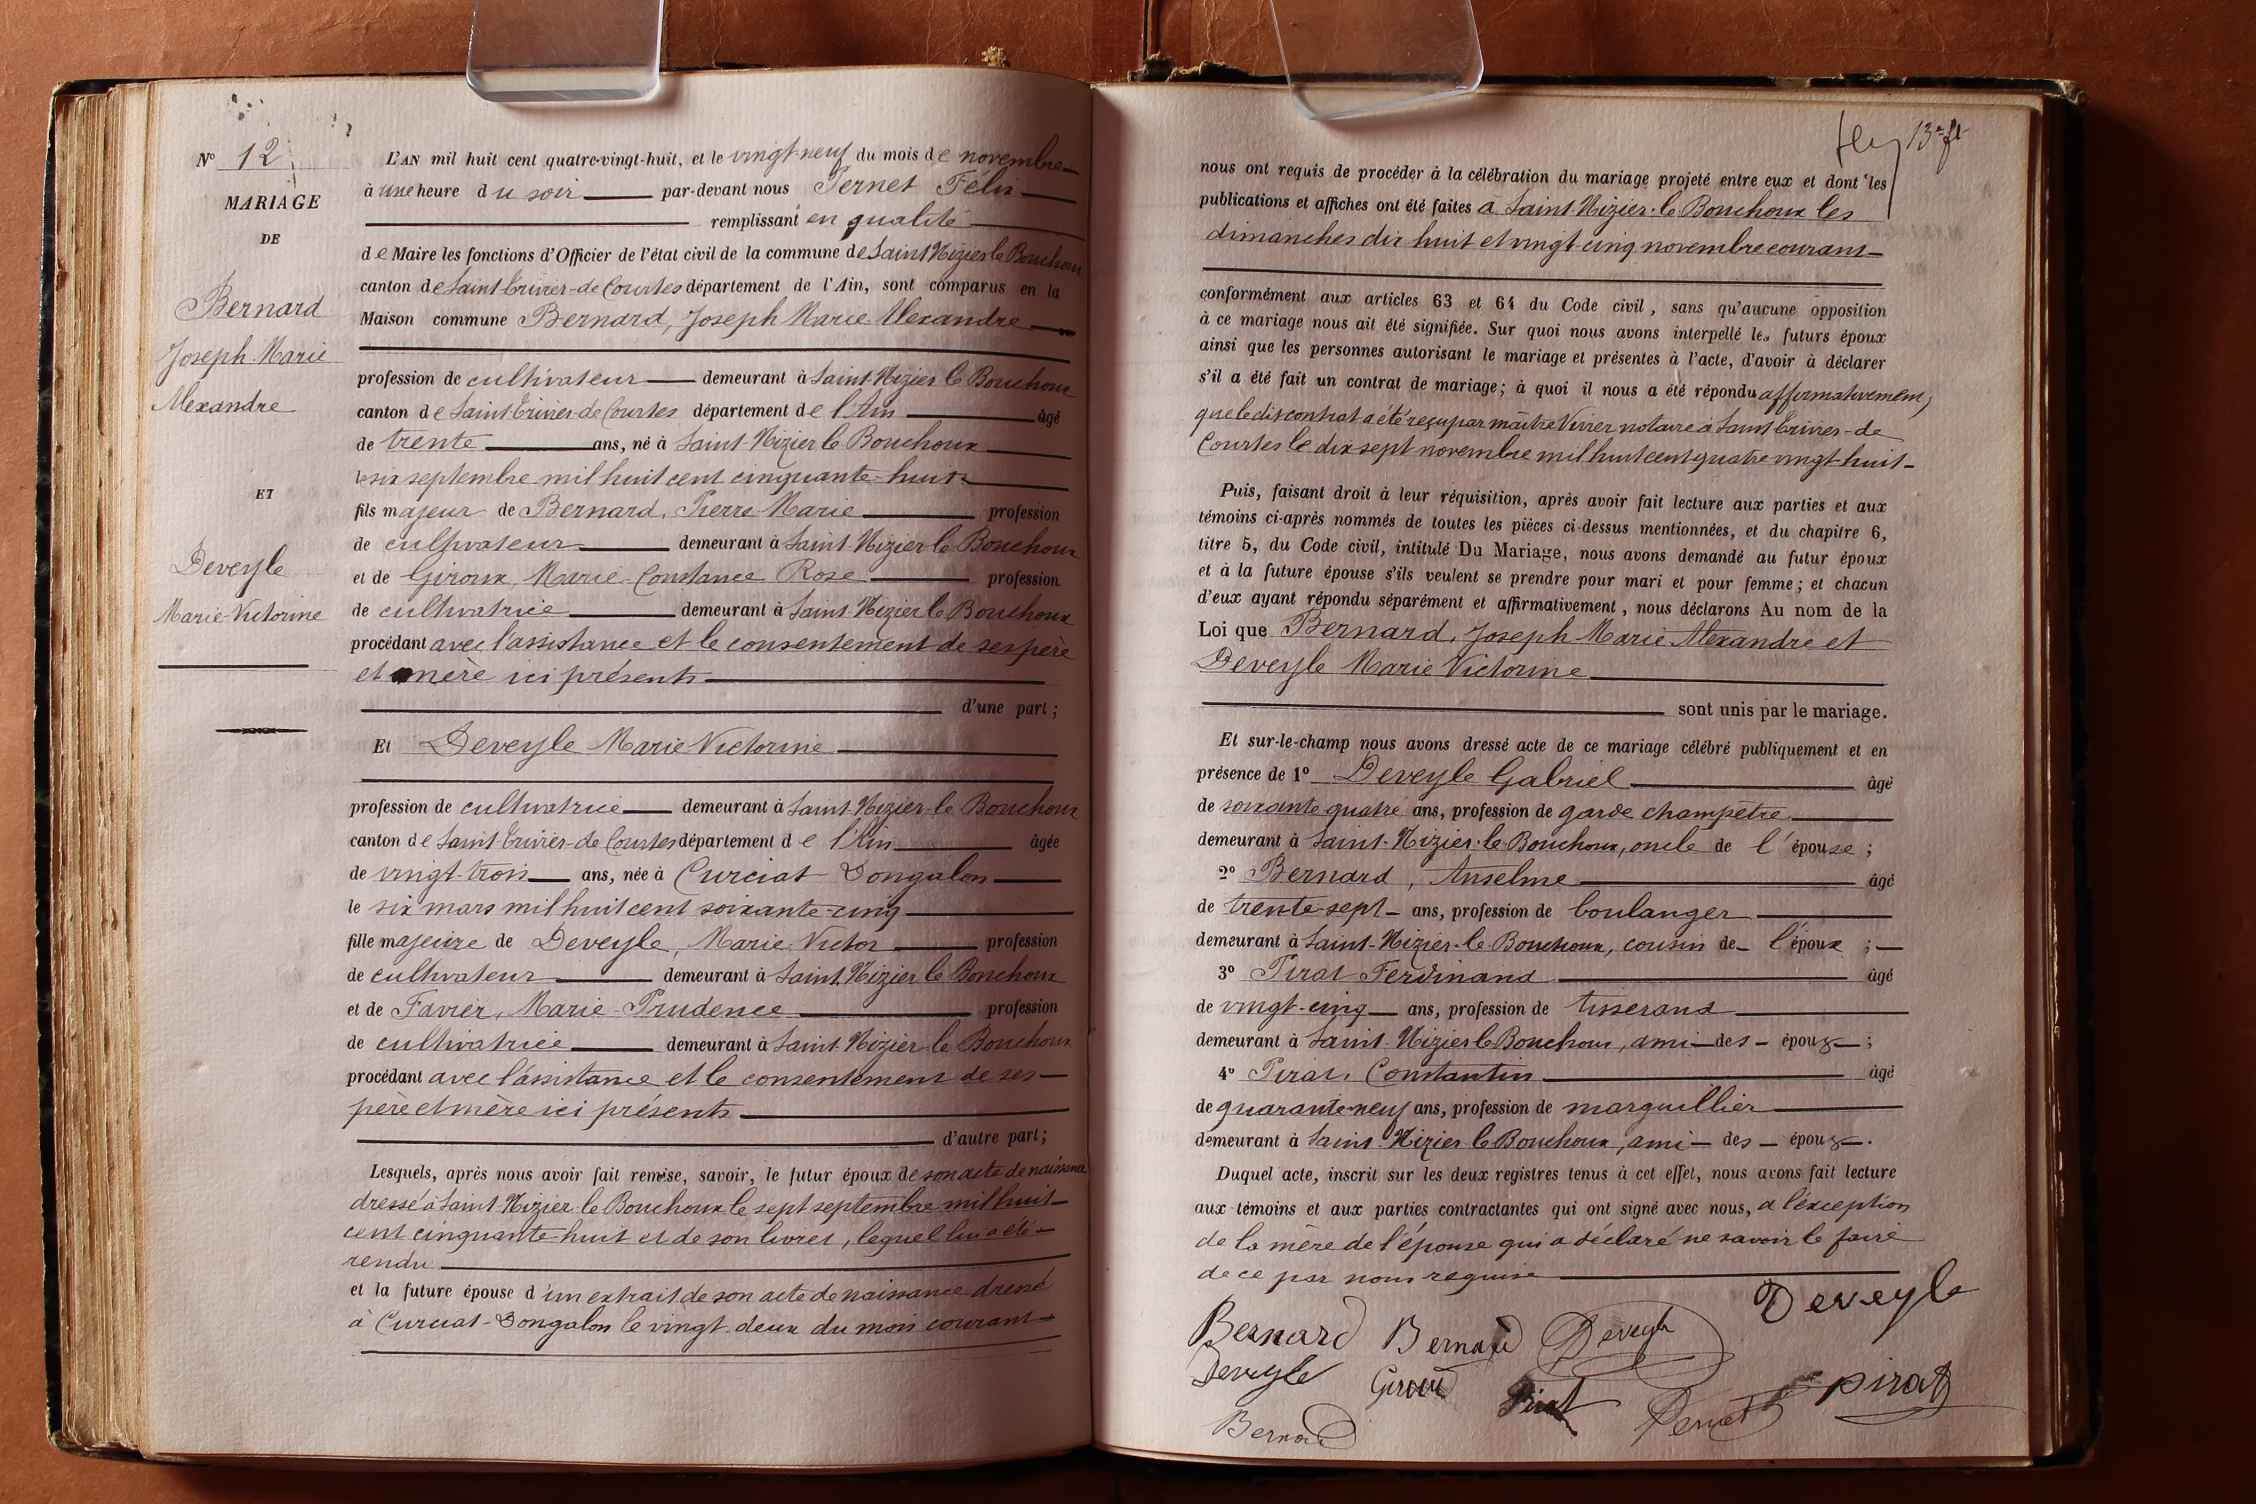 N° 12
MARIAGE
DE
Bernard
Joseph-Marie
Alexandre
ET
Deveyle
Marie-Victorine
L'AN mil huit cent quatre-vingt-huit, et le vingt-neuf du mois de novembre
à une heure du soir par-devant nous Pernet Félix
remplissant en qualité
de Maire les fonctions d'Officier de l'état civil de la commune de Saint Nizier le Bouchoux
canton de Saint Trivier-de Courtes département de l'Ain, sont comparus en la
Maison commune Bernard, Joseph Marie Alexandre
profession de cultivateur demeurant à Saint-Nizier le Bouchoux
canton de Saint Trivier-de Courtes département de l'Ain âgé
de trente ans, né à Saint-Nizier le Bouchoux
le six septembre mil huit cent cinquante-huit
fils majeur de Bernard, Pierre-Marie profession
de cultivateur demeurant à Saint-Nizier le Bouchoux
et de Giroux, Marie-Constance Rose profession
de cultivatrice demeurant à Saint-Nizier le Bouchoux
procédant avec l'assistance et le consentement de ses père
et mère ici présents
d'une part;
Et Deveyle Marie Victorine
profession de cultivatrice demeurant à Saint-Nizier-le Bouchoux
canton de Saint Trivier-de Courtes département de l'Ain âgée
de vingt-trois ans, née à Curciat Dongalon
le six mars mil huit cent soixante-cinq
fille majeure de Deveyle, Marie-Victor profession
de cultivateur demeurant à Saint-Nizier le Bouchoux
et de Favier, Marie-Prudence profession
de cultivatrice demeurant à Saint-Nizier-le Bouchoux
procédant avec l'assistance et le consentement de ses
père et mère ici présents
d'autre part;
Lesquels, après nous avoir fait remise, savoir, le futur époux de son acte de naissance
dressé à Saint-Nizier le Bouchoux le sept septembre mil huit
cent cinquante-huit et de son livret, lequel lui a été
rendu
et la future épouse d'un extrait de son acte de naissance dressé
à Curciat-Dongalon le vingt-deux du mois courant
13e ft
nous ont requis de procéder à la célébration du mariage projeté entre eux et dont les
publications et affiches ont été faites à Saint-Nizier-le Bouchoux les
dimanches dix huit et vingt-cinq novembre courant
conformément aux articles 63 et 64 du Code civil, sans qu'aucune opposition
à ce mariage nous ait été signifiée. Sur quoi nous avons interpellé les futurs époux
ainsi que les personnes autorisant le mariage et présentes à l'acte, d'avoir à déclarer
s'il a été fait un contrat de mariage; à quoi il nous a été répondu affirmativement,
que le dit contrat a été reçu par maître Vivier notaire à Saint Trivier-de
Courtes le dix sept novembre mil huit cent quatre vingt-huit
Puis, faisant droit à leur réquisition, après avoir fait lecture aux parties et aux
témoins ci-après nommés de toutes les pièces ci-dessus mentionnées, et du chapitre 6,
titre 5, du Code civil, intitulé Du Mariage, nous avons demandé au futur époux
et à la future épouse s'ils veulent se prendre pour mari et pour femme; et chacun
d'eux ayant répondu séparément et affirmativement, nous déclarons Au nom de la
Loi que Bernard, Joseph-Marie Alexandre et
Deveyle Marie Victorine
sont unis par le mariage.
Et sur-le-champ nous avons dressé acte de ce mariage célébré publiquement et en
présence de 1° Deveyle Gabriel âgé
de soixante quatre ans, profession de garde champêtre
demeurant à Saint-Nizier-le-Bouchoux, oncle de l'épouse;
2° Bernard, Anselme âgé
de trente-sept ans, profession de boulanger
demeurant à Saint-Nizier-le Bouchoux, cousin de l'époux;
3° Pirat Ferdinand âgé
de vingt-cinq ans, profession de tisserand
demeurant à Saint-Nizier le Bouchoux, ami des époux;
4° Pirat, Constantin âgé
de quarante-neuf ans, profession de marguillier
demeurant à Saint-Nizier le Bouchoux, ami des époux.
Duquel acte, inscrit sur les deux registres tenus à cet effet, nous avons fait lecture
aux témoins et aux parties contractantes qui ont signé avec nous, à l'exception
de la mère de l'épouse qui a déclaré ne savoir le faire
de ce par nous requise
Deveyle
Bernard Bernard Deveyle
Deveyle Giroud Pirat Pernet pirat
Bernard